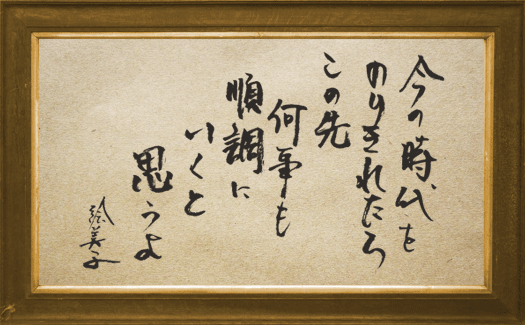 今の時代を
のりきれたら
この先
何事も
順調に
いくと
思うよ
絵美子